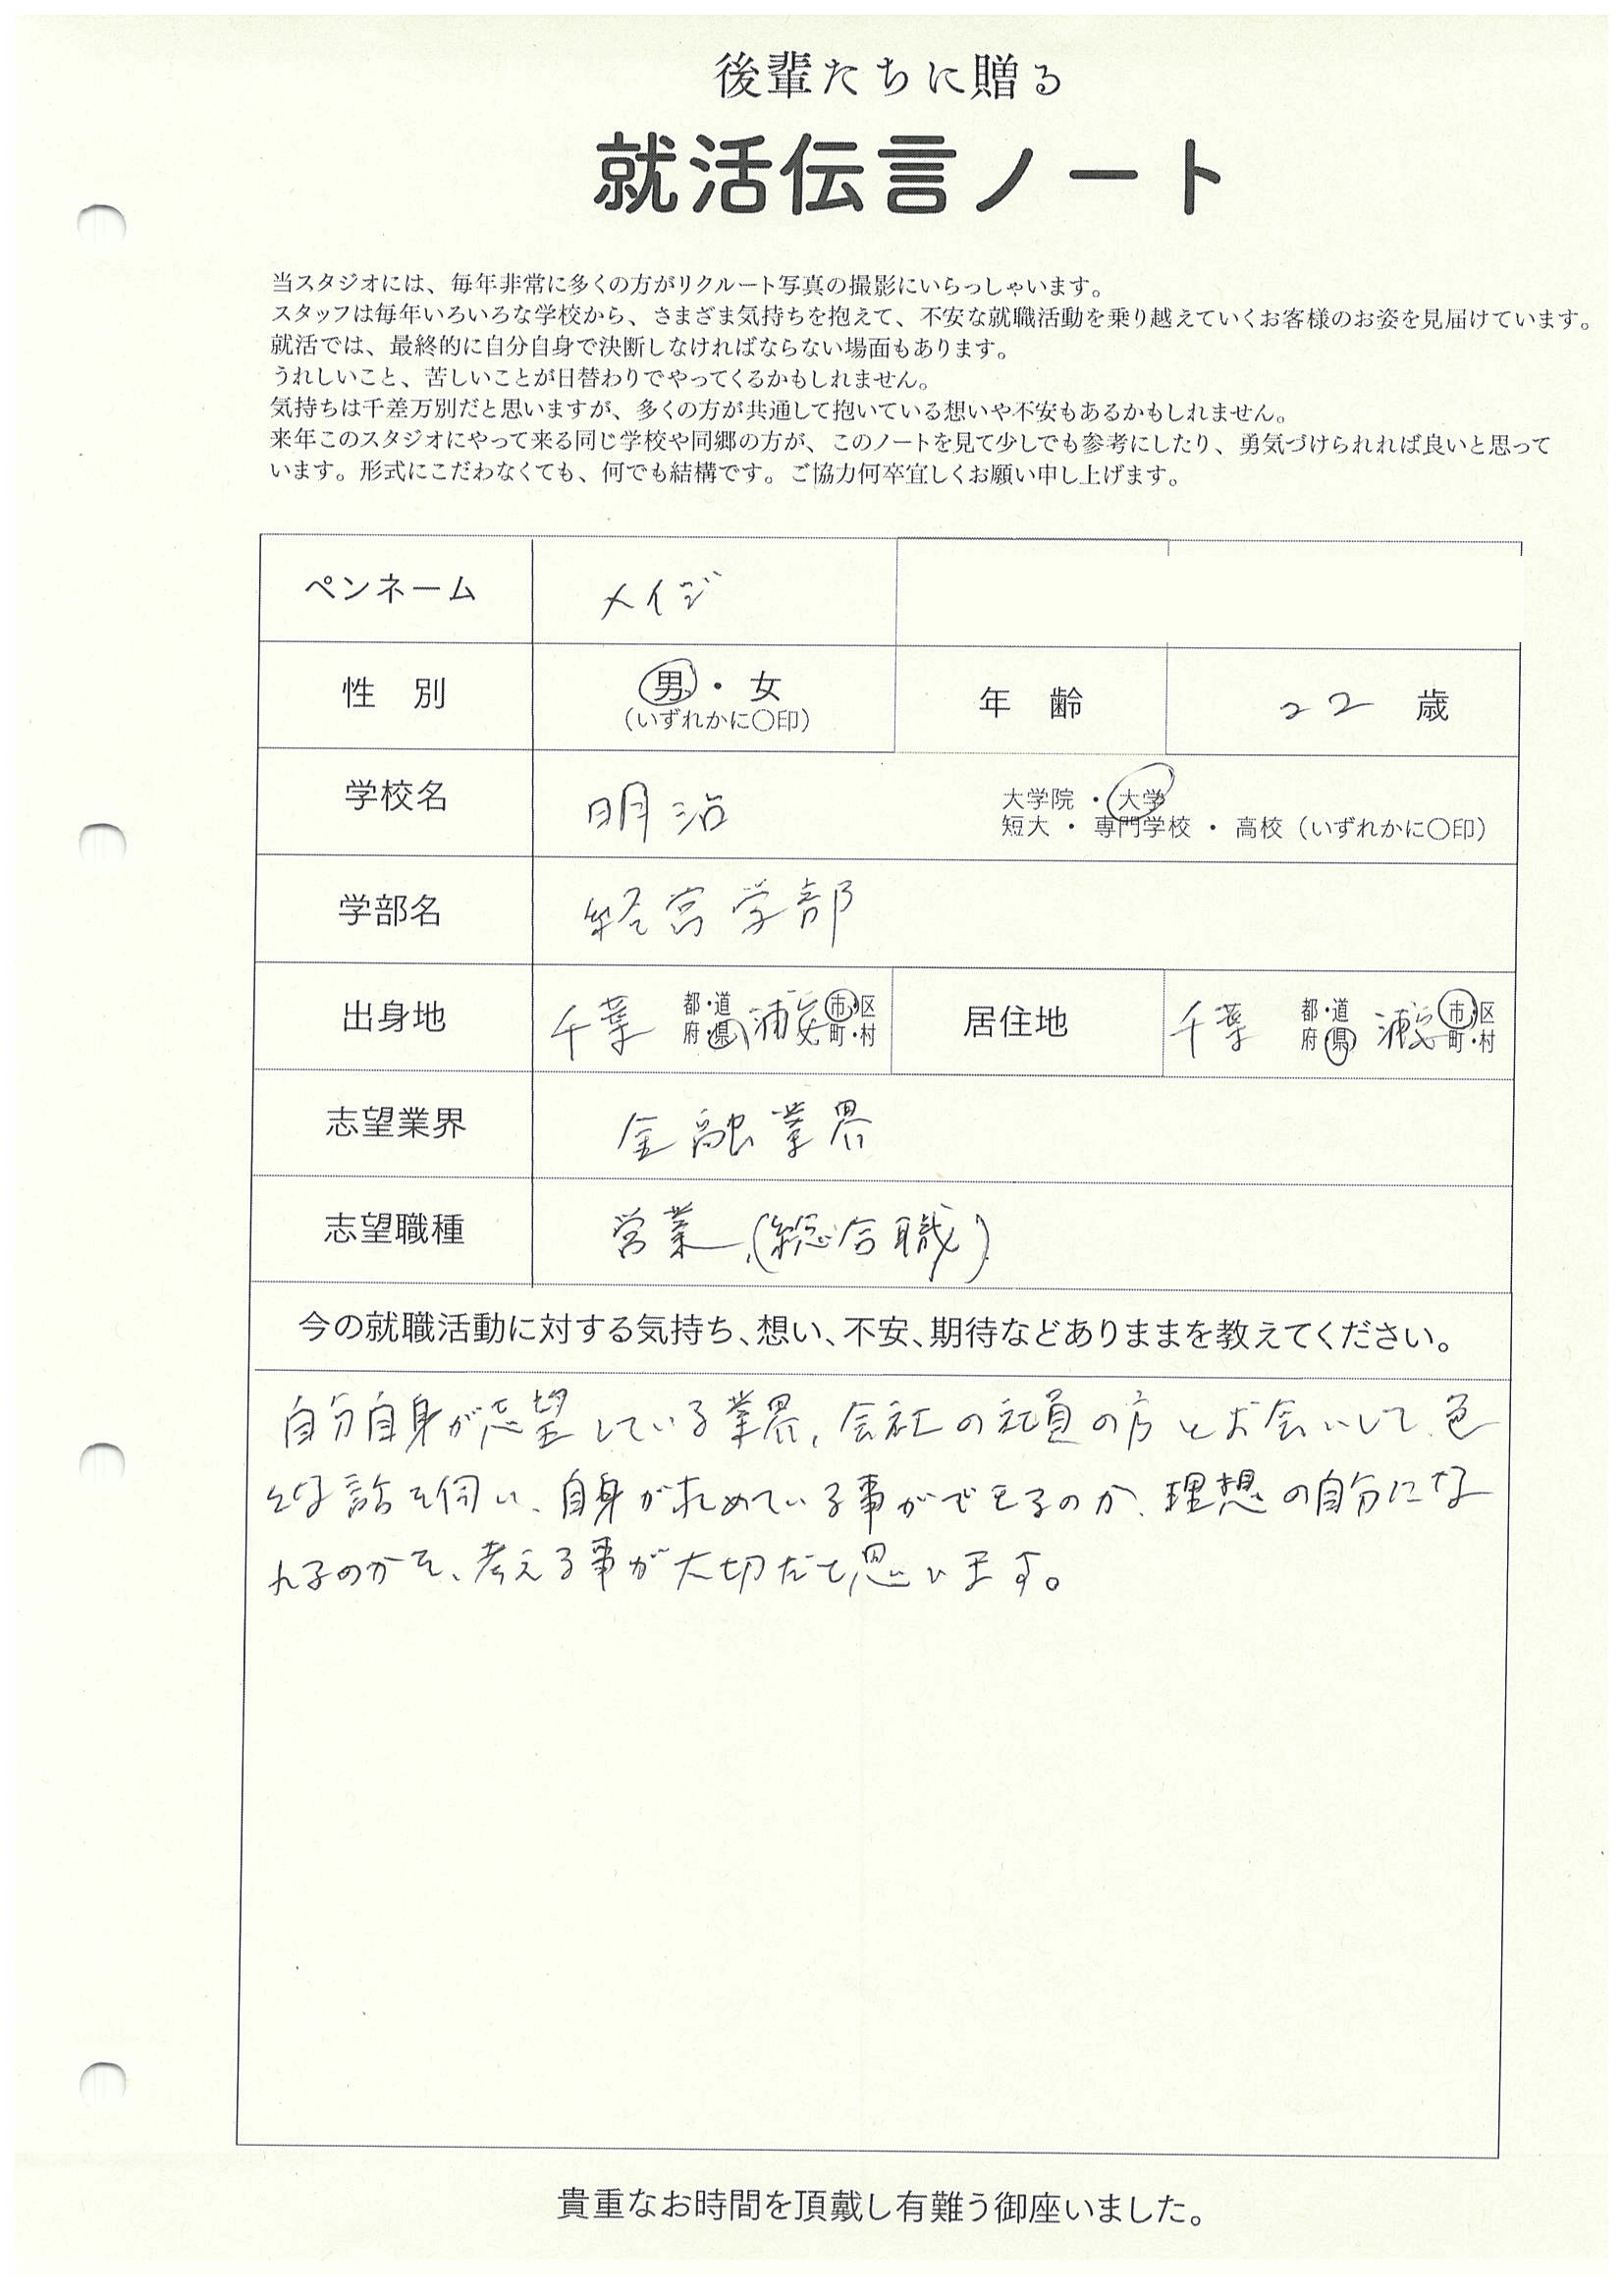 後輩たちに贈る
就活伝言ノート
当スタジオには、毎年非常に多くの方がリクルート写真の撮影にいらっしゃいます。
スタッフは毎年いろいろな学校から、さまざま気持ちを抱えて、不安な就職活動を乗り越えていくお客様のお姿を見届けています。
就活では、最終的に自分自身で決断しなければならない場面もあります。
うれしいこと、苦しいことが日替わりでやってくるかもしれません。
気持ちは千差万別だと思いますが、多くの方が共通して抱いている想いや不安もあるかもしれません。
来年このスタジオにやって来る同じ学校や同郷の方が、このノートを見て少しでも参考にしたり、勇気づけられれば良いと思って
います。形式にこだわなくても、何でも結構です。ご協力何卒宜しくお願い申し上げます。
ペンネーム メイジ
性 別 男・女 年 齢 22 歳
(いずれかに〇印)
学校名 明治 大学院 ・ 大学
短大 ・ 専門学校 ・ 高校(いずれかに〇印)
学部名 経営学部
出身地 千葉 都・道 府・県 浦安 市・区 町・村 居住地 千葉 都・道 府・県 浦安 市・区 町・村
志望業界 金融業界
志望職種 営業(総合職)
今の就職活動に対する気持ち、想い、不安、期待などありままを教えてください。
自分自身が志望している業界、会社の社員の方とお会いして、色
々な話を伺い、自身が求めている事ができるのか、理想の自分にな
れるのかを、考える事が大切だと思います。
貴重なお時間を頂戴し有難う御座いました。